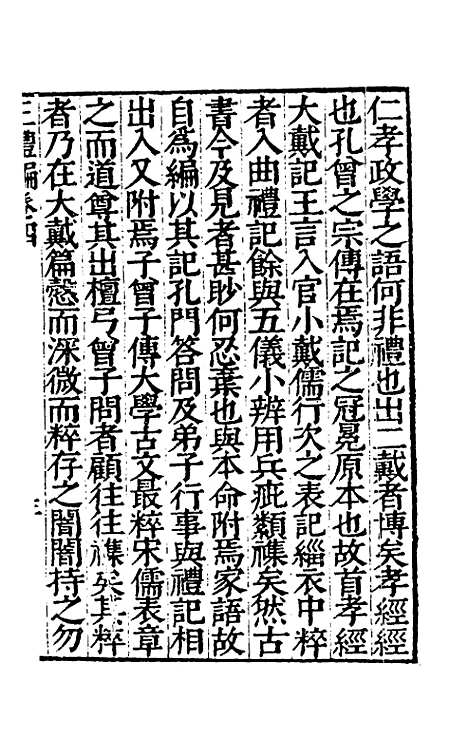 仁孝政學之語何非禮也出二戴者博矣孝經經
也孔曾之宗傳在焉記之冠冕原本也故首孝經
大戴記王言入官小戴儒行次之表記緇衣中粹
者入曲禮記餘與五儀小辨用兵疵纇襍矣然古
書今及見者甚尠何忍棄也與本命附焉家語故
自爲編以其記孔門答問及弟子行事與禮記相
出入又附焉子曾子傳大學古文最粹宋儒表章
之而道尊其出檀弓曾子問者顧往往襍矣其粹
者乃在大戴篇慤而深微而粹存之闇闇持之勿
三禮編卷四
三